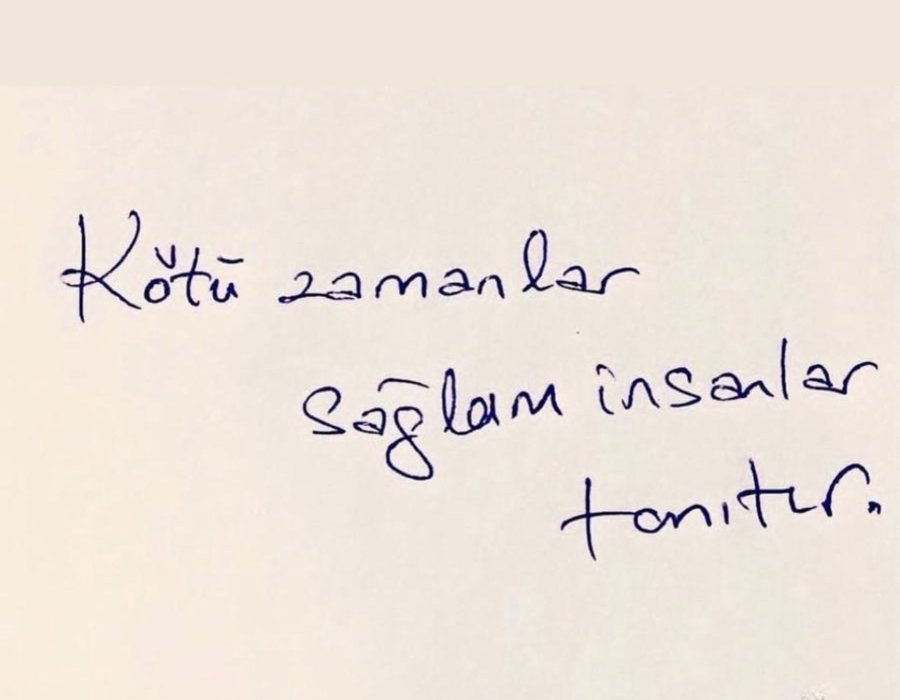 Kötü zamanlar
sağlam insanlar
tanıtır.